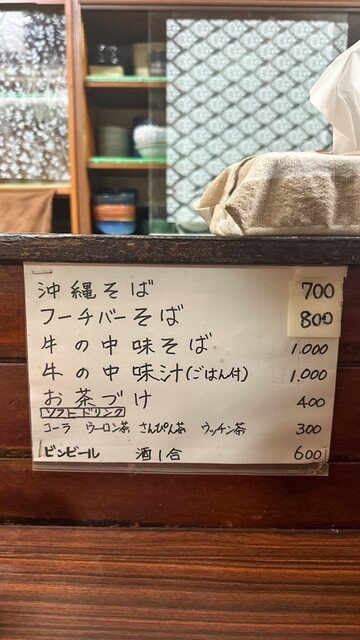 沖縄そば 700
フーチバーそば 800
牛の中味そば 1.000
牛の中味汁(ごはん付) 1.000
お茶づけ 400
ソフトドリンク
コーラ ウーロン茶 さんぴん茶 ウッチン茶 300
ビンビール 酒1合 600